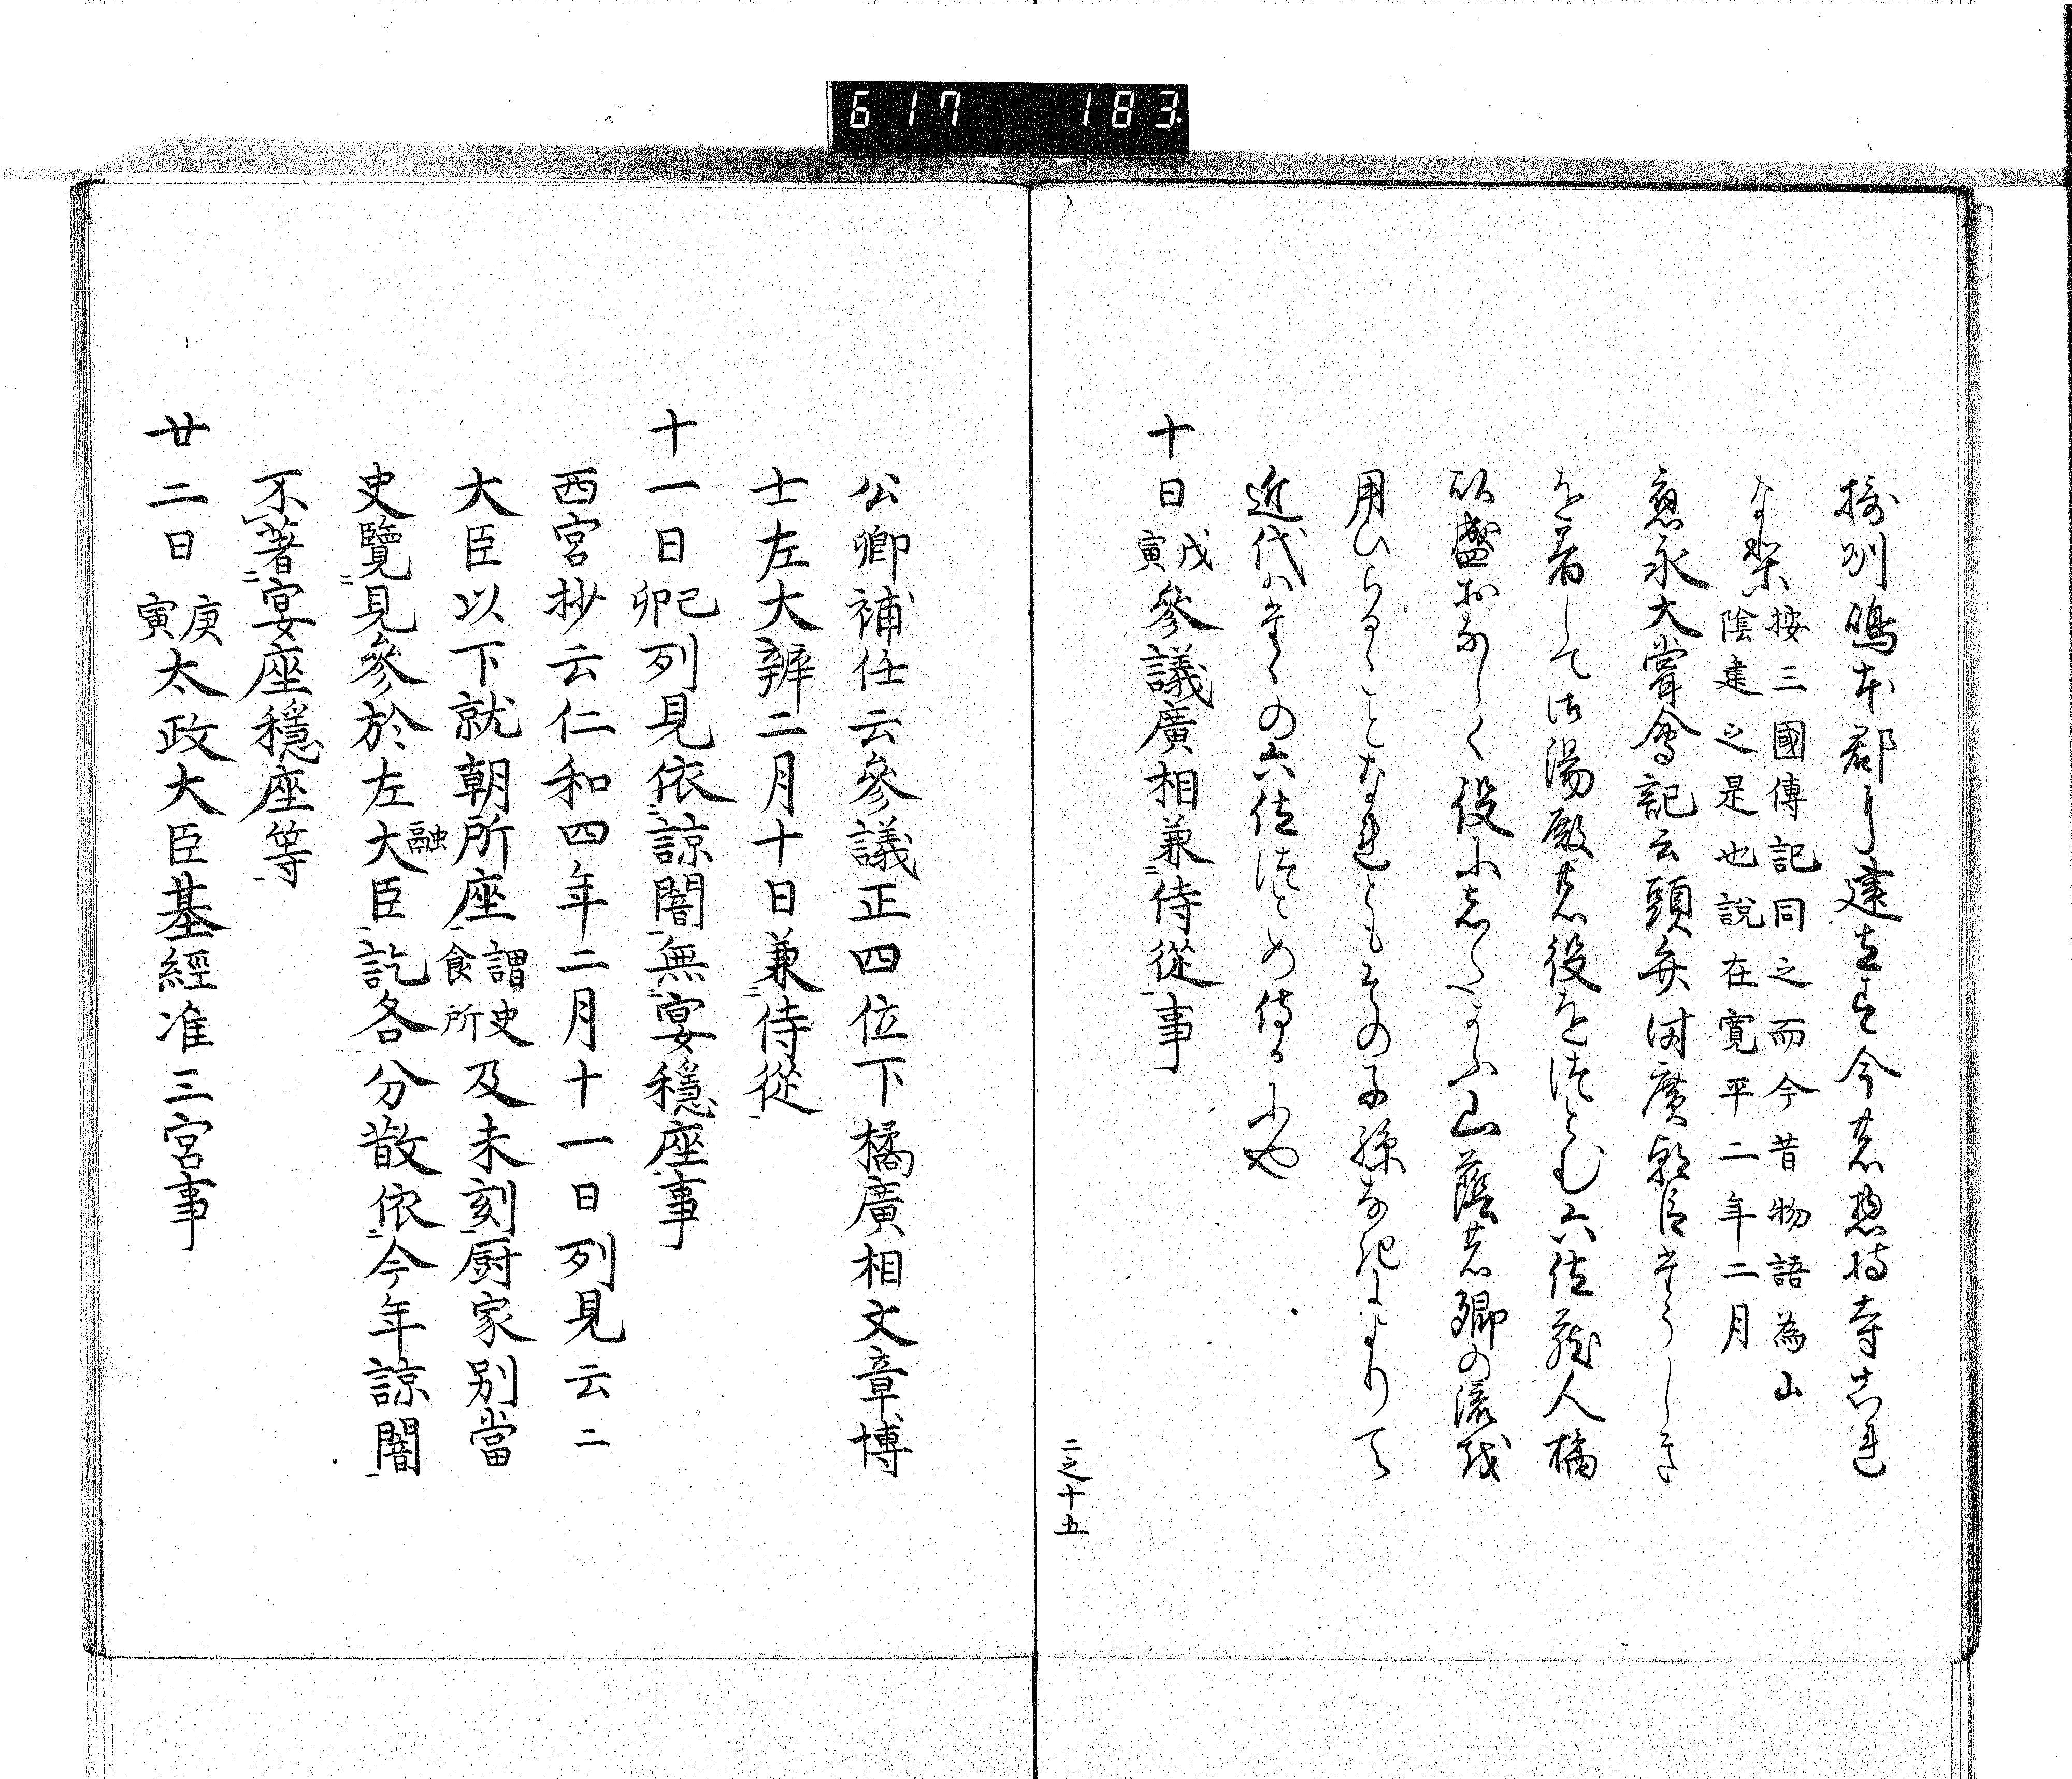 617 183
攝州嶋下郡に建立す今の惣持寺これ
なり 按三國傳記同之而今昔物語為山
陰建之是也說在寛平二年二月
應永大嘗會記云頭弁
を着して御湯殿の役をつとむ六位蔵人橘
以盛おなしく役にしたかふ山蔭の卿の流
用ひらるゝことなれともその子孫なきによりて
近代は
の六位つとめ侍るにや
十日戊寅參議廣相兼侍從事
二之十五
公卿補任云參議正四位下橘廣相文章博
士左大辨二月十日兼侍從
十一日己卯列見依諒闇無宴穩座事
西宮抄云仁和四年二月十一日列見云二
大臣以下就朝所座謂史食所及未刻厨家別當
史覽見參於左大臣融訖各分散依今年諒闇
不著宴座穩座等
廿二日庚寅太政大臣基經准三宮事